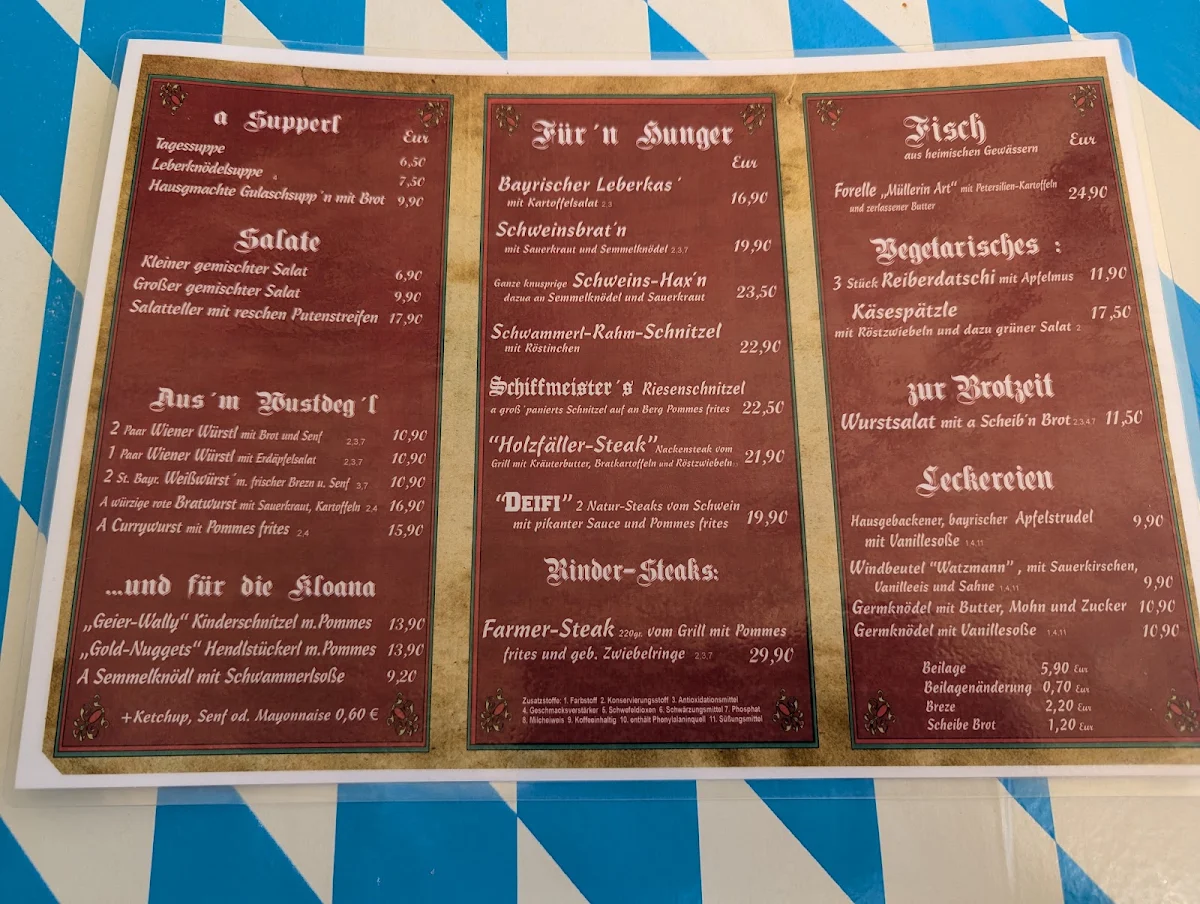 a Supperl
Eur
Tagessuppe 6,50
Leberknödelsuppe 7,50
Hausgmachte Gulaschsupp´n mit Brot 9,90
Salate
Kleiner gemischter Salat 6,90
Großer gemischter Salat 9,90
Salatteller mit reschen Putenstreifen 17,90
Aus´m Wustdeg´l
2 Paar Wiener Würstl mit Brot und Senf 2,3,7 10,90
1 Paar Wiener Würstl mit Erdäpfelsalat 2,3,7 10,90
2 St. Bayr. Weißwürst´m. frischer Brezn u. Senf 3,7 10,90
A würzige rote Bratwurst mit Sauerkraut, Kartoffeln 2,4 16,90
A Currywurst mit Pommes frites 2,4 15,90
...und für die Kloana
„Geier-Wally" Kinderschnitzel m.Pommes 13,90
„Gold-Nuggets" Hendlstückerl m.Pommes 13,90
A Semmelknödl mit Schwammerlsoße 9,20
+Ketchup, Senf od. Mayonnaise 0,60 €
Für´n Hunger
Eur
Bayrischer Leberkas´
mit Kartoffelsalat 2,3 16,90
Schweinsbrat´n
mit Sauerkraut und Semmelknödel 2,3,7 19,90
Ganze knusprige Schweins-Hax´n
dazua an Semmelknödel und Sauerkraut 23,50
Schwammerl-Rahm-Schnitzel
mit Röstinchen 22,90
Schiffmeister´s Riesenschnitzel
a groß´paniertes Schnitzel auf an Berg Pommes frites 22,50
"Holzfäller-Steak" Nackensteak vom
Grill mit Kräuterbutter, Bratkartoffeln und Röstzwiebeln 21,90
"DEIFI" 2 Natur-Steaks vom Schwein
mit pikanter Sauce und Pommes frites 19,90
Rinder-Steaks:
Farmer-Steak 220gr. vom Grill mit Pommes
frites und geb. Zwiebelringe 2,3,7 29,90
Zusatzstoffe: 1. Farbstoff 2. Konservierungsstoff 3. Antioxidationsmittel
4. Geschmacksverstärker 5. Schwefeldioxen 6. Schwärzungsmittel 7. Phosphat
8. Milcheiweis 9. Koffeinhaltig 10. enthält Phenylalaninquell 11. Süßungsmittel
Fisch
Eur
aus heimischen Gewässern
Forelle „Müllerin Art" mit Petersilien-Kartoffeln
und zerlassener Butter 24,90
Vegetarisches :
3 Stück Reiberdatschi mit Apfelmus 11,90
Käsespätzle 17,50
mit Röstzwiebeln und dazu grüner Salat 2
zur Brotzeit
Wurstsalat mit a Scheib´n Brot 2,3,4,7 11,50
Leckereien
Hausgebackener, bayrischer Apfelstrudel 9,90
mit Vanillesoße 1,4,11
Windbeutel "Watzmann" , mit Sauerkirschen,
Vanilleeis und Sahne 1,4,11 9,90
Germknödel mit Butter, Mohn und Zucker 10,90
Germknödel mit Vanillesoße 1,4,11 10,90
Beilage 5,90 Eur
Beilagenänderung 0,70 Eur
Breze 2,20 Eur
Scheibe Brot 1,20 Eur